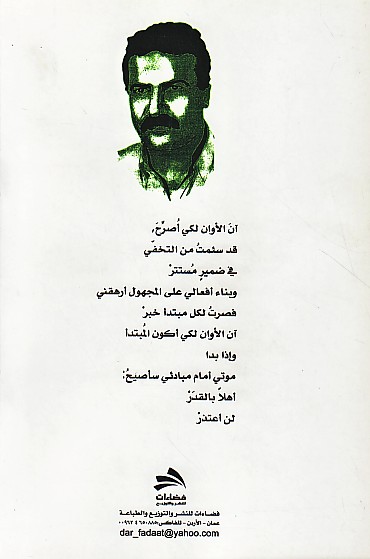 آنَ الأوان لكي أُصرِّحَ،
قد سئمتُ من التخفّي
في ضميرٍ مُستترْ
وبناء أفعالي على المجهول أرهقني
فصرتُ لكل مبتدأ خبرْ
آن الأوان لكي أكون المُبتدأ
وإذا بدا
موتي أمام مبادئي سأصيحُ:
أهلاً بالقدَرْ
لن أعتذرْ
فضاءات
للنشر والتوزيع
فضاءات للنشر والتوزيع والطباعة
عمان - الأردن - تلفاكس: ٤٦٥٠٨٨٥ ٦ ٠٠٩٦٢
dar_fadaat@yahoo.com